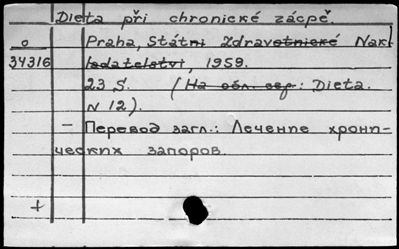 Dieta při chronické zácpě.
o
34316
Praha, Státni Zdravotnické Nak
ladatelstvi, 1959.
23 S. (На обл. сер: Dieta.
N 12).
– Перевод загл.: Лечение хрони-
ческих запоров.
+